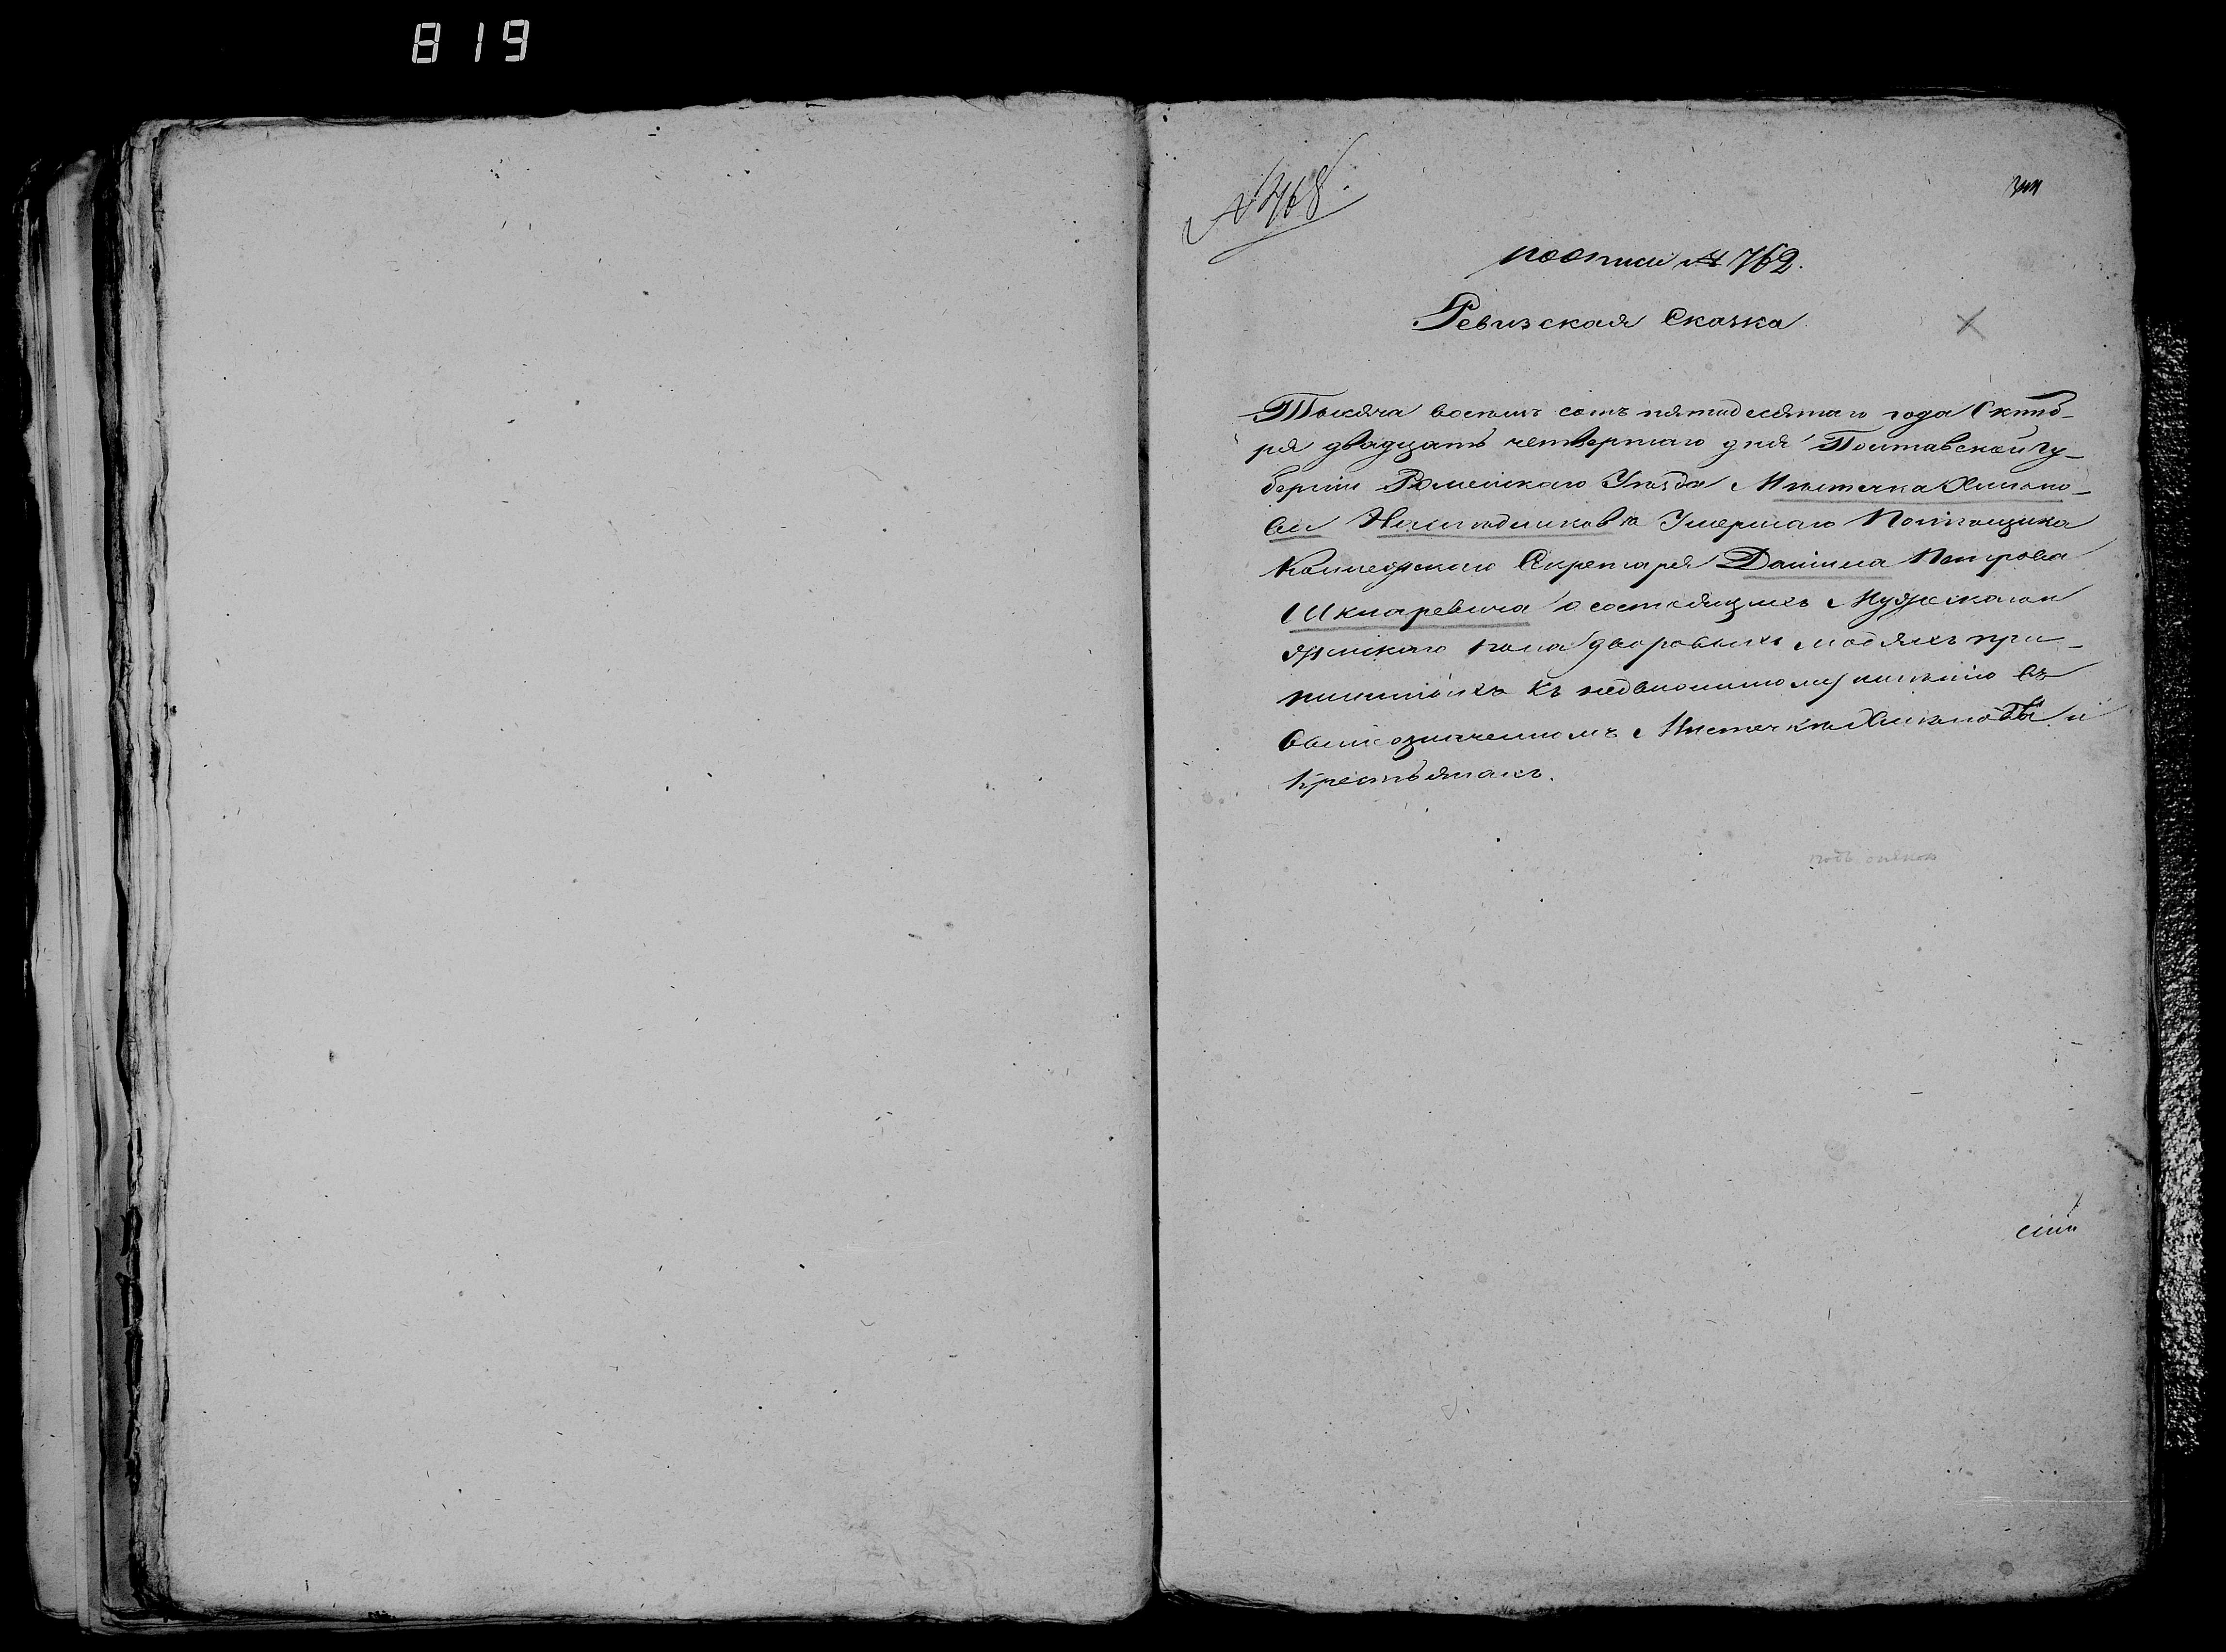 819
№ 768.
росписи № 762.
Ревизская Сказка
Тысяча восемь сотъ пятидесятаго года Октяб-
ря двадцать четвертаго дня Полтавской Гу-
берніи Роменскаго Уѣзда Мѣстечка Хмѣло-
ва Наслѣдниковъ Умершаго Помѣщика
Коллежскаго Секретаря Даніила Петрова
Шкляревича о состоящихъ Мужескаго и
женскаго пола дворовыхъ людяхъ при-
писанныхъ къ недвижимому имѣнію въ
вышеозначенномъ Мѣстечкѣ Хмѣловѣ и
крестьянахъ.